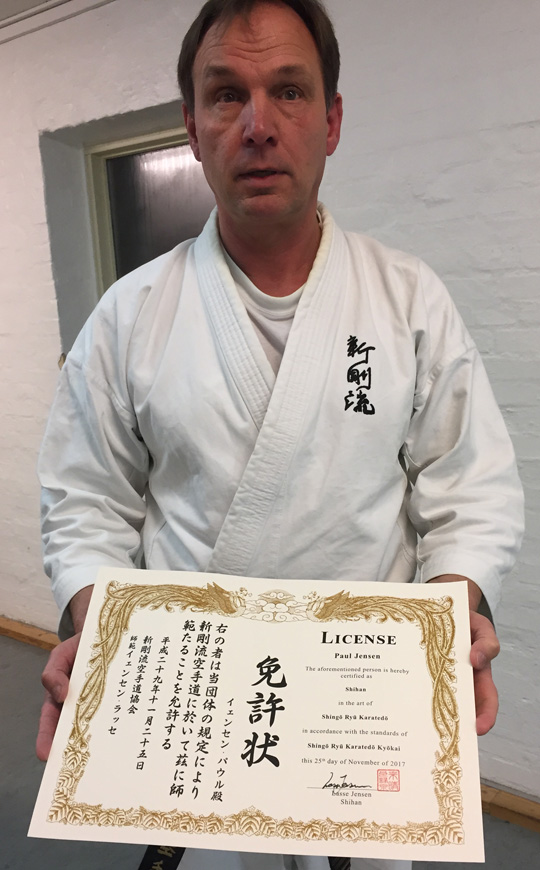 新剛流
LICENSE
Paul Jensen
The aforementioned person is hereby
certified as
Shihan
in the art of
Shingō Ryū Karatedō
in accordance with the standards of
Shingō Ryū Karatedō Kyōkai
this 25th day of November of 2017
Lasse Jensen
Shihan
免許状
イェンセン・パウル殿
右の者は当団体の規定により
新剛流空手道に於いて茲に師
範たることを允許する
平成二十九年十一月二十五日
新剛流空手道協会
師範イェンセン・ラッセ